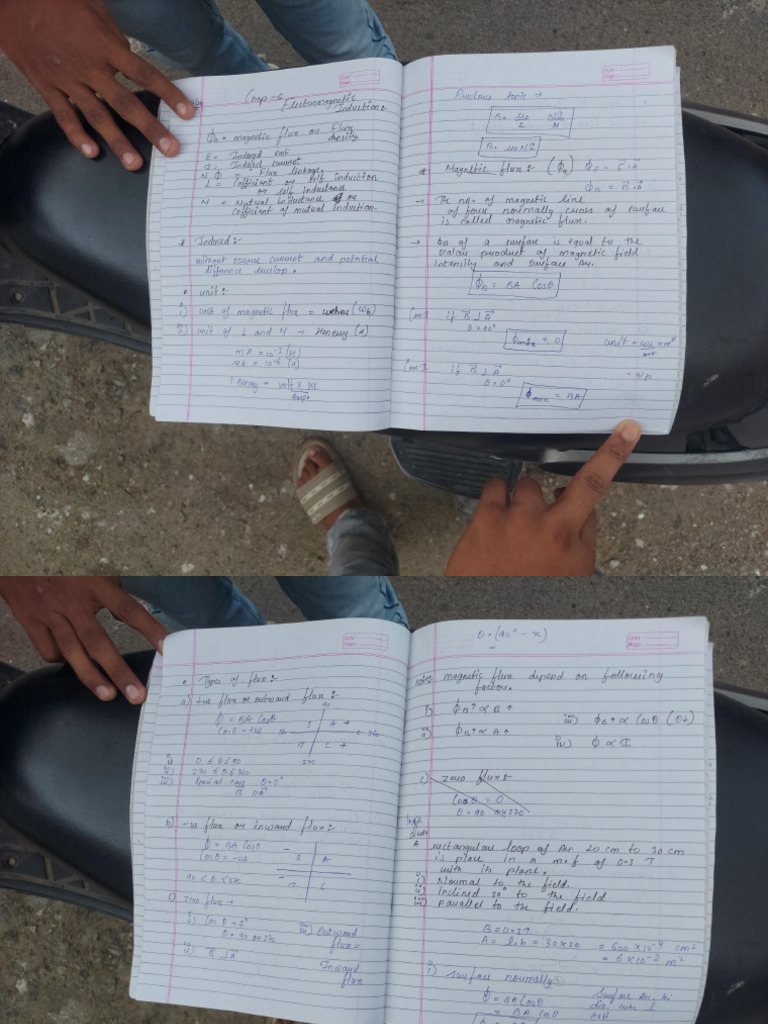 Chap-6
Electromagnetic
Induction:-
ϕB = magnetic flux or Flux
density
E = Induced emf
I = Induced current
N ϕ = Flux linkage.
L = Coefficient or self induction
or self inductance
M = Mutual inductance or
Coefficient of mutual induction.
* Induced:-
without source current and potential
difference develop.
• unit:-
i) unit of magnetic flux = weber (wb)
ii) unit of L and M → Henery (H)
mH = 10⁻³ (H)
μH = 10⁻⁶ (H)
1 Henery = volt x
Amp.
Previous topic →
B = μ0 N I
B = μ0 N I
* Magnetic flux:- (ϕB)
ϕB = B⃗ · A⃗
→ The no. of magnetic line
of force normally cross of surface
is called magnetic flux.
→ of a surface is equal to the
scalar product of magnetic field
intensity and surface Ar.
ϕB = BA Cosθ
If B⃗ ⊥ A⃗
θ = 90°
= 0
If B⃗ ⊥ A⃗
θ = 0°
= BA
• Types of flux:-
a) +ve flux or outward flux:-
ϕ = BA Cosθ
Cosθ = +ve
90
S A +
T C +
270
i) 0 ≤ θ ≤ 90
ii) 270 ≤ θ ≤ 360
iii) Special case θ = 0°
B⃗ || A⃗
b) -ve flux or inward flux:-
ϕ = BA Cosθ
Cosθ = -ve
S A
T C
90 < θ < 270
c) zero flux →
i) Cos θ = 0°
θ = 90 or 270
ii) B⃗ ⊥ A⃗
iii) Outward
flux =
Inward
flux
θ = (90° - x)
magnetic flux depend on following
factor.
i) ϕB ↑ ∝ B ↑
ii) ϕB ↑ ∝ A ↑
iii) ϕB ↑ ∝ Cosθ (θ↓)
iv) ϕ ∝ I.
c) zero flux:-
Cosθ = 0
θ = 90 or 270
A rectangular loop of Ar. 20 cm to 30 cm
is place in a m.f of 0.3 T
with its plane.
i) Normal to the field.
ii) inclined 30° to the field
iii) parallel to the field.
B = 0.3T
A = l x b = 30 x 20 = 600 x 10⁻⁴ cm²
= 6 x 10⁻² m²
i) Surface normally
ϕ = BA Cosθ
= BA Cosθ